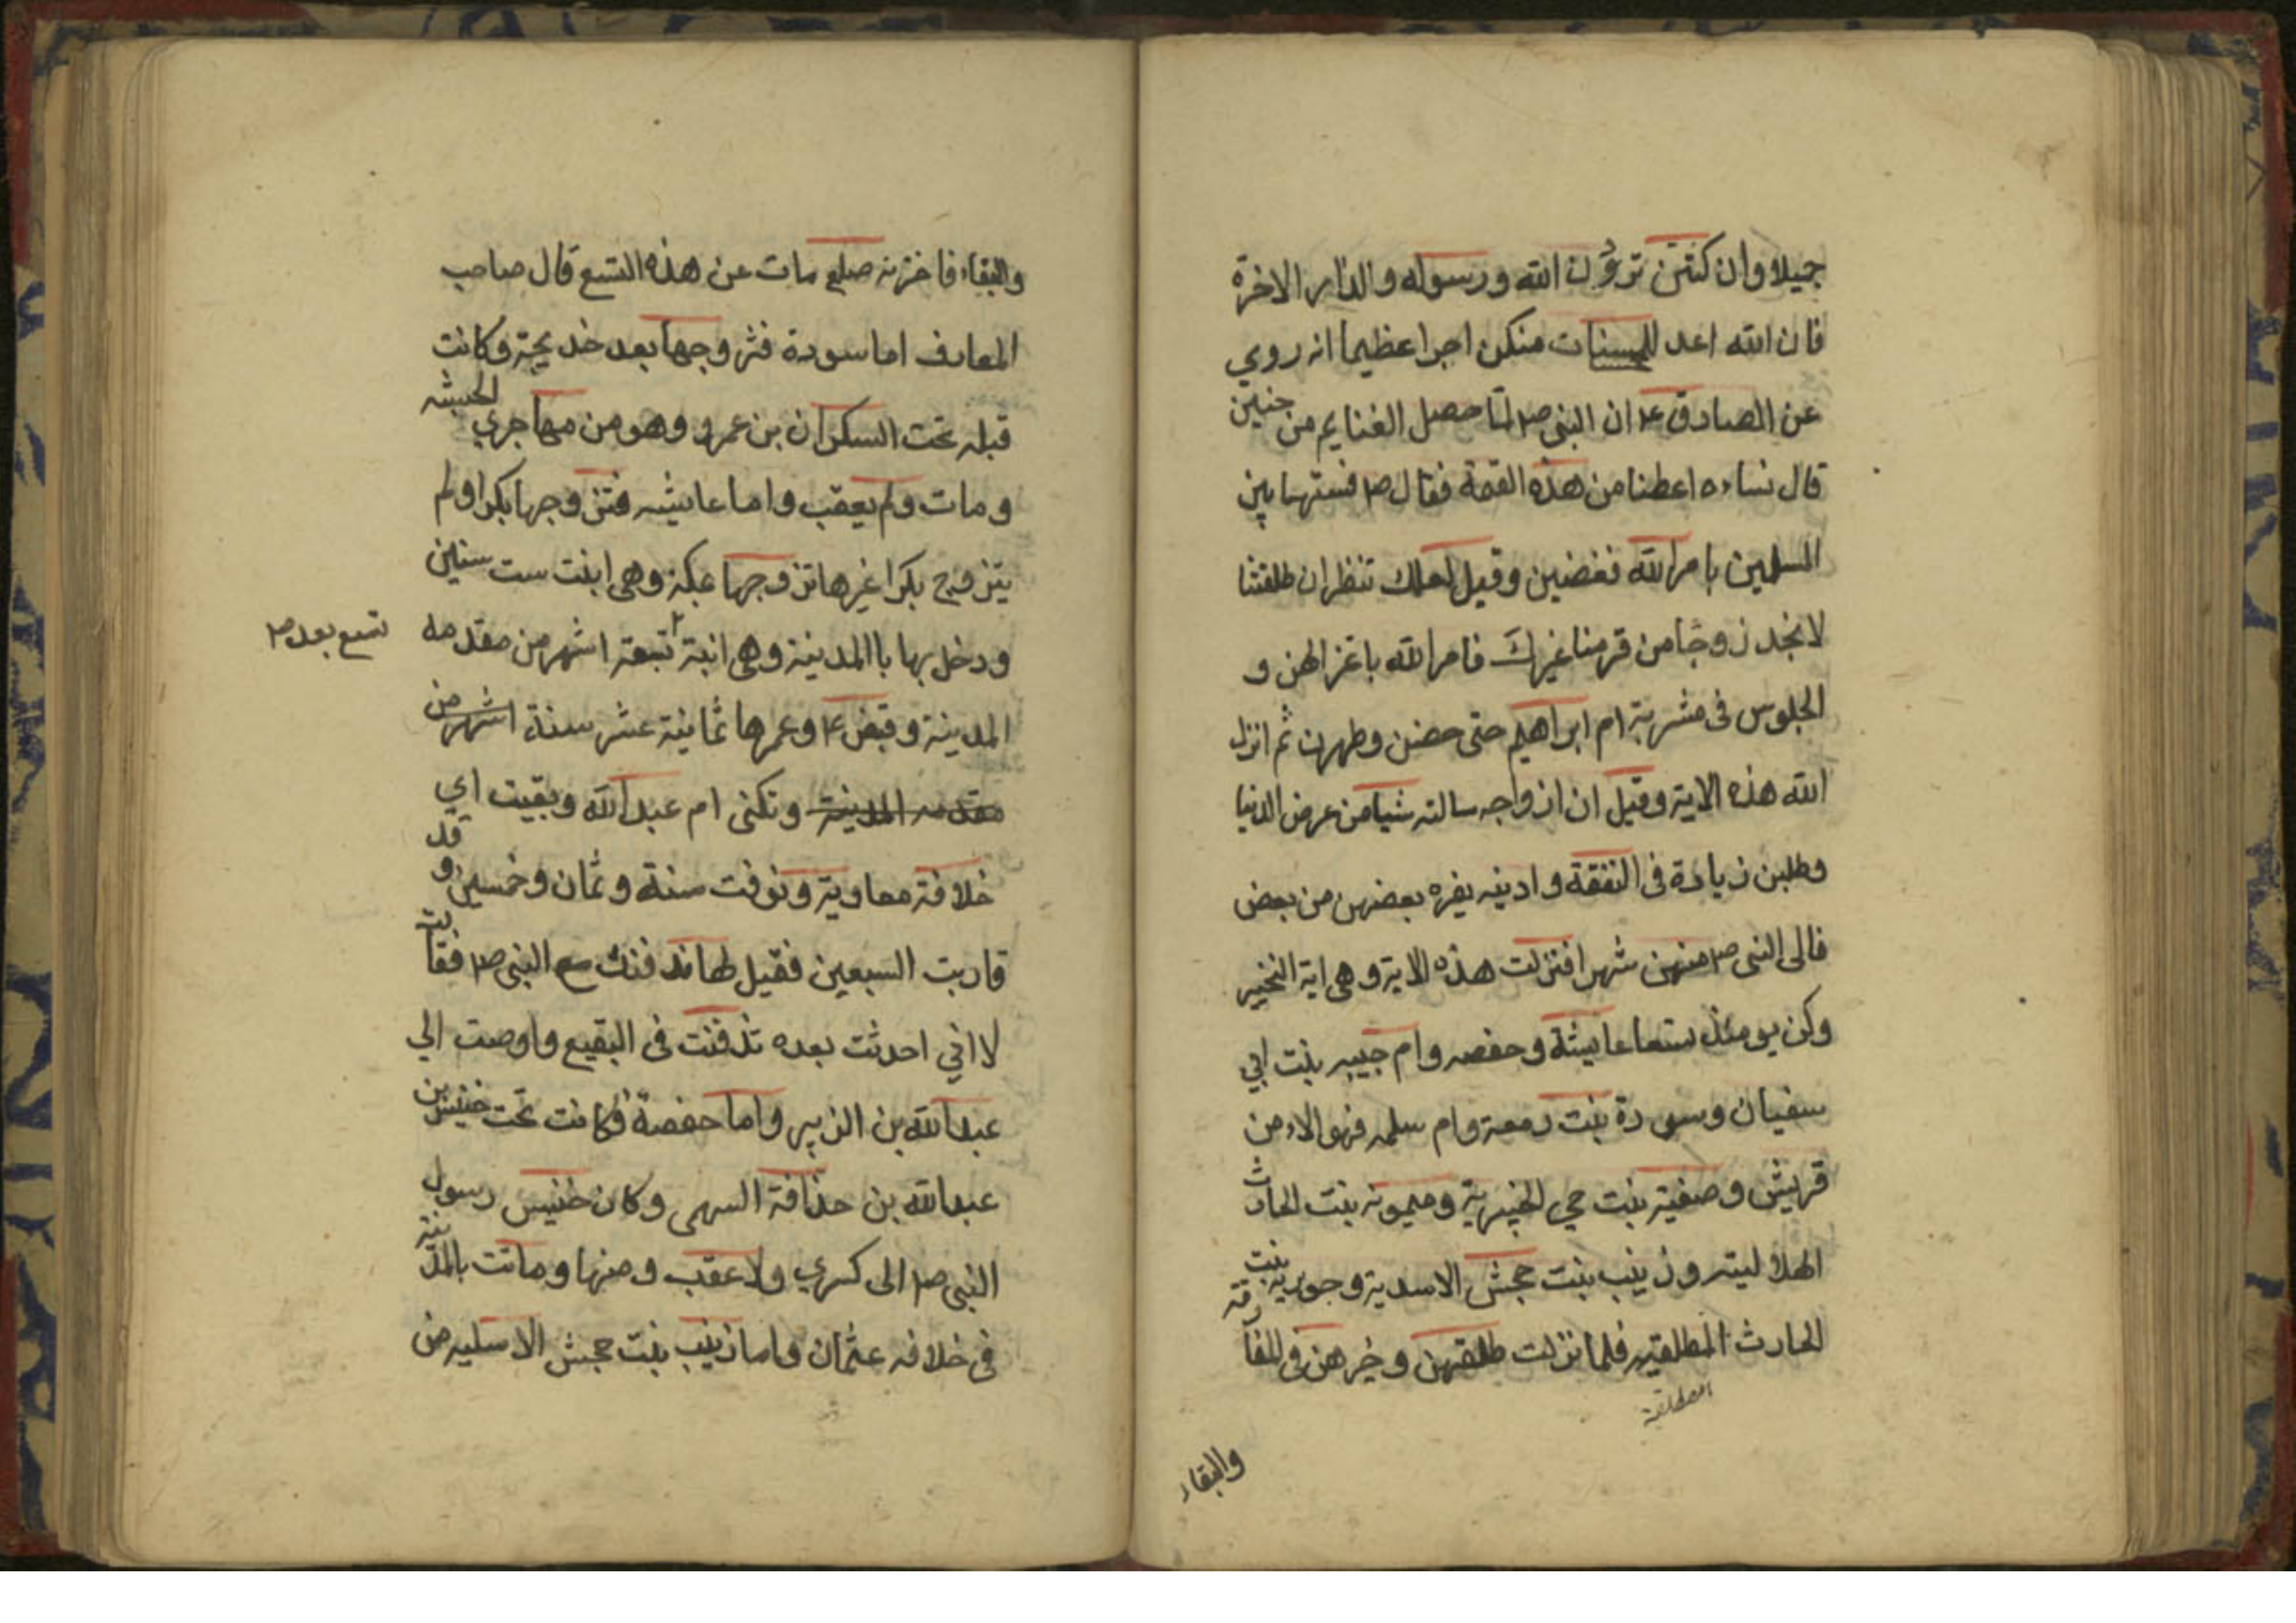 جميلا وان كنتن تردن الله ورسوله والدار الاخرة
فان الله اعد للمحسنات منكن اجرا عظيما انه روي
عن الصادق ع ان النبي ص لما حصل الغنايم من حنين
قال نساءه اعطنا من هذه القمة فقال ص قسمتها بين
المسلمين بامر الله فغضبن وقيل لعلك تنظر ان طلقتنا
لا نجد زوجا من قومنا غيرك فامر الله باعتزالهن و
الجلوس في مشربة ام ابراهيم حتى حضن وطهرن ثم انزل
الله هذه الاية وقيل ان ازواجه سالته شيا من عرض الدنيا
وطلبن زيادة في النفقة واذينه بغيره بعضهن من بعض
فالى النبي ص منهن شهرا فنزلت هذه الاية وهي اية التخيير
وكن يومئذ تسعا عايشة وحفصه وام حبيبه بنت ابي
سفيان وسودة بنت زمعة وام سلمه فهولاء من
قريش وصفية بنت حي الخيبرية وميمونه بنت الحارث
الهلاليته وزينب بنت جحش الاسدية وجويرية بنت
الحارث المطلقيه فلما نزلت طلقهن وخيرهن في المفارقة
المصطلقية
والبقاء
والبقاء فاخترنه صلع مات عن هذه التسع قال صاحب
المعارف اما سودة فتزوجها بعد خديجة وكانت
قبله تحت السكران بن عمرو وهو من مهاجري الحبشه
ومات ولم يعقب واما عايشه فتزوجها بكرا ولم
يتزوج بكرا غيرها تزوجها بمكة وهي ابنت ست سنين
ودخل بها باالمدينة وهي ابنة تسعة اشهر من مقدمه
تسع بعد ص
المدينة وقبض ع وعمرها ثمانية عشر سنة اشهر من
مقدمه المدينة وتكنى ام عبد الله وبقيت اي
خلافة معاوية وتوفت سنة وثمان وخمسين وقد
قاربت السبعين فقيل لها ندفنك مع النبي ص فقالت
لا اني احدثت بعده تدفنت في البقيع واوصت الي
عبد الله بن الزبير واما حفصة فكانت تحت خنيس بن
عبد الله بن حذافة السهمي وكان خنيس رسول
النبي ص الى كسري ولا عقب ومنها وماتت بالمدينة
في خلافه عثمان واما زينب بنت جحش الاسليه من